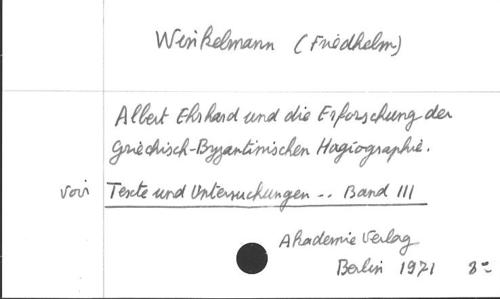 Winkelmann (Friedhelm)
Albert Ehrhard und die Erforschung der
Griechisch-Byzantinischen Hagiographie.
voir Texte und Untersuchungen .. Band III
Akademie Verlag
Berlin 1971 8°